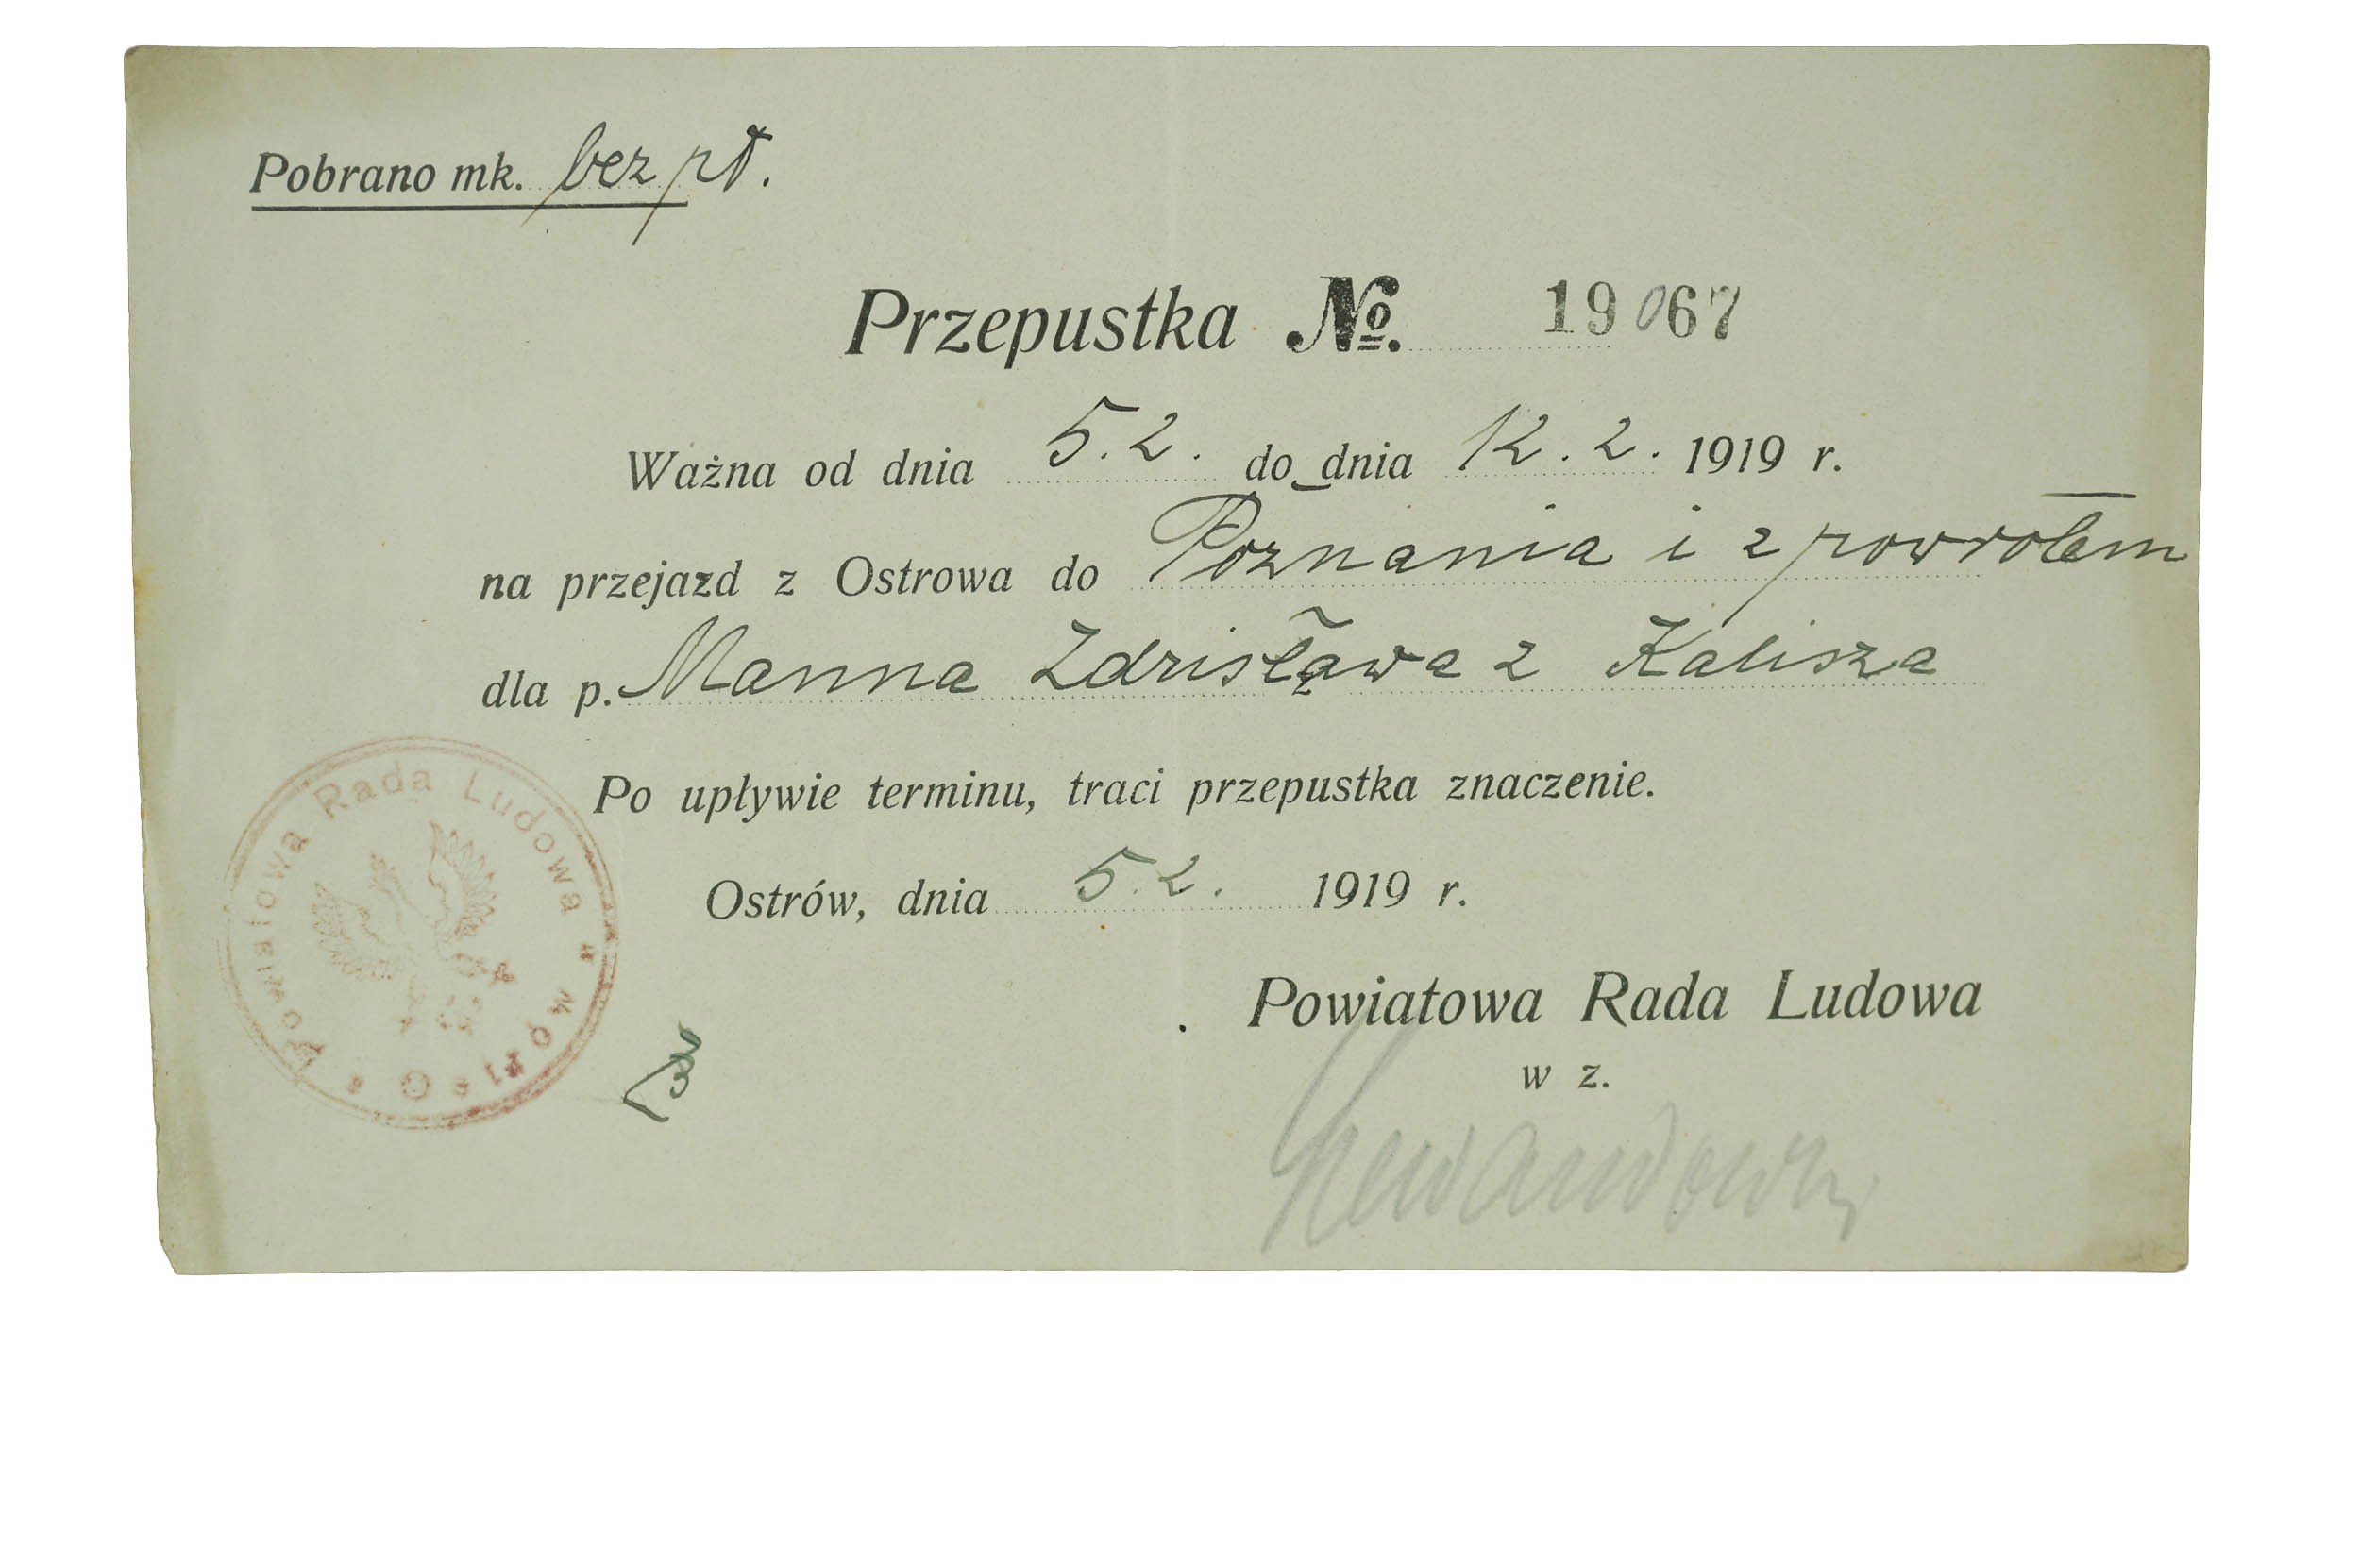 Pobrano mk. bez pł.
Przepustka No. 19067
Ważna od dnia 5.2. do dnia 12.2. 1919 r.
na przejazd z Ostrowa do Poznania i z powrotem
dla p. Manna Zdzisława z Kalisza
Po upływie terminu, traci przepustka znaczenie.
Ostrów, dnia 5.2. 1919 r.
Powiatowa Rada Ludowa
w z.
Powiatowa Rada Ludowa